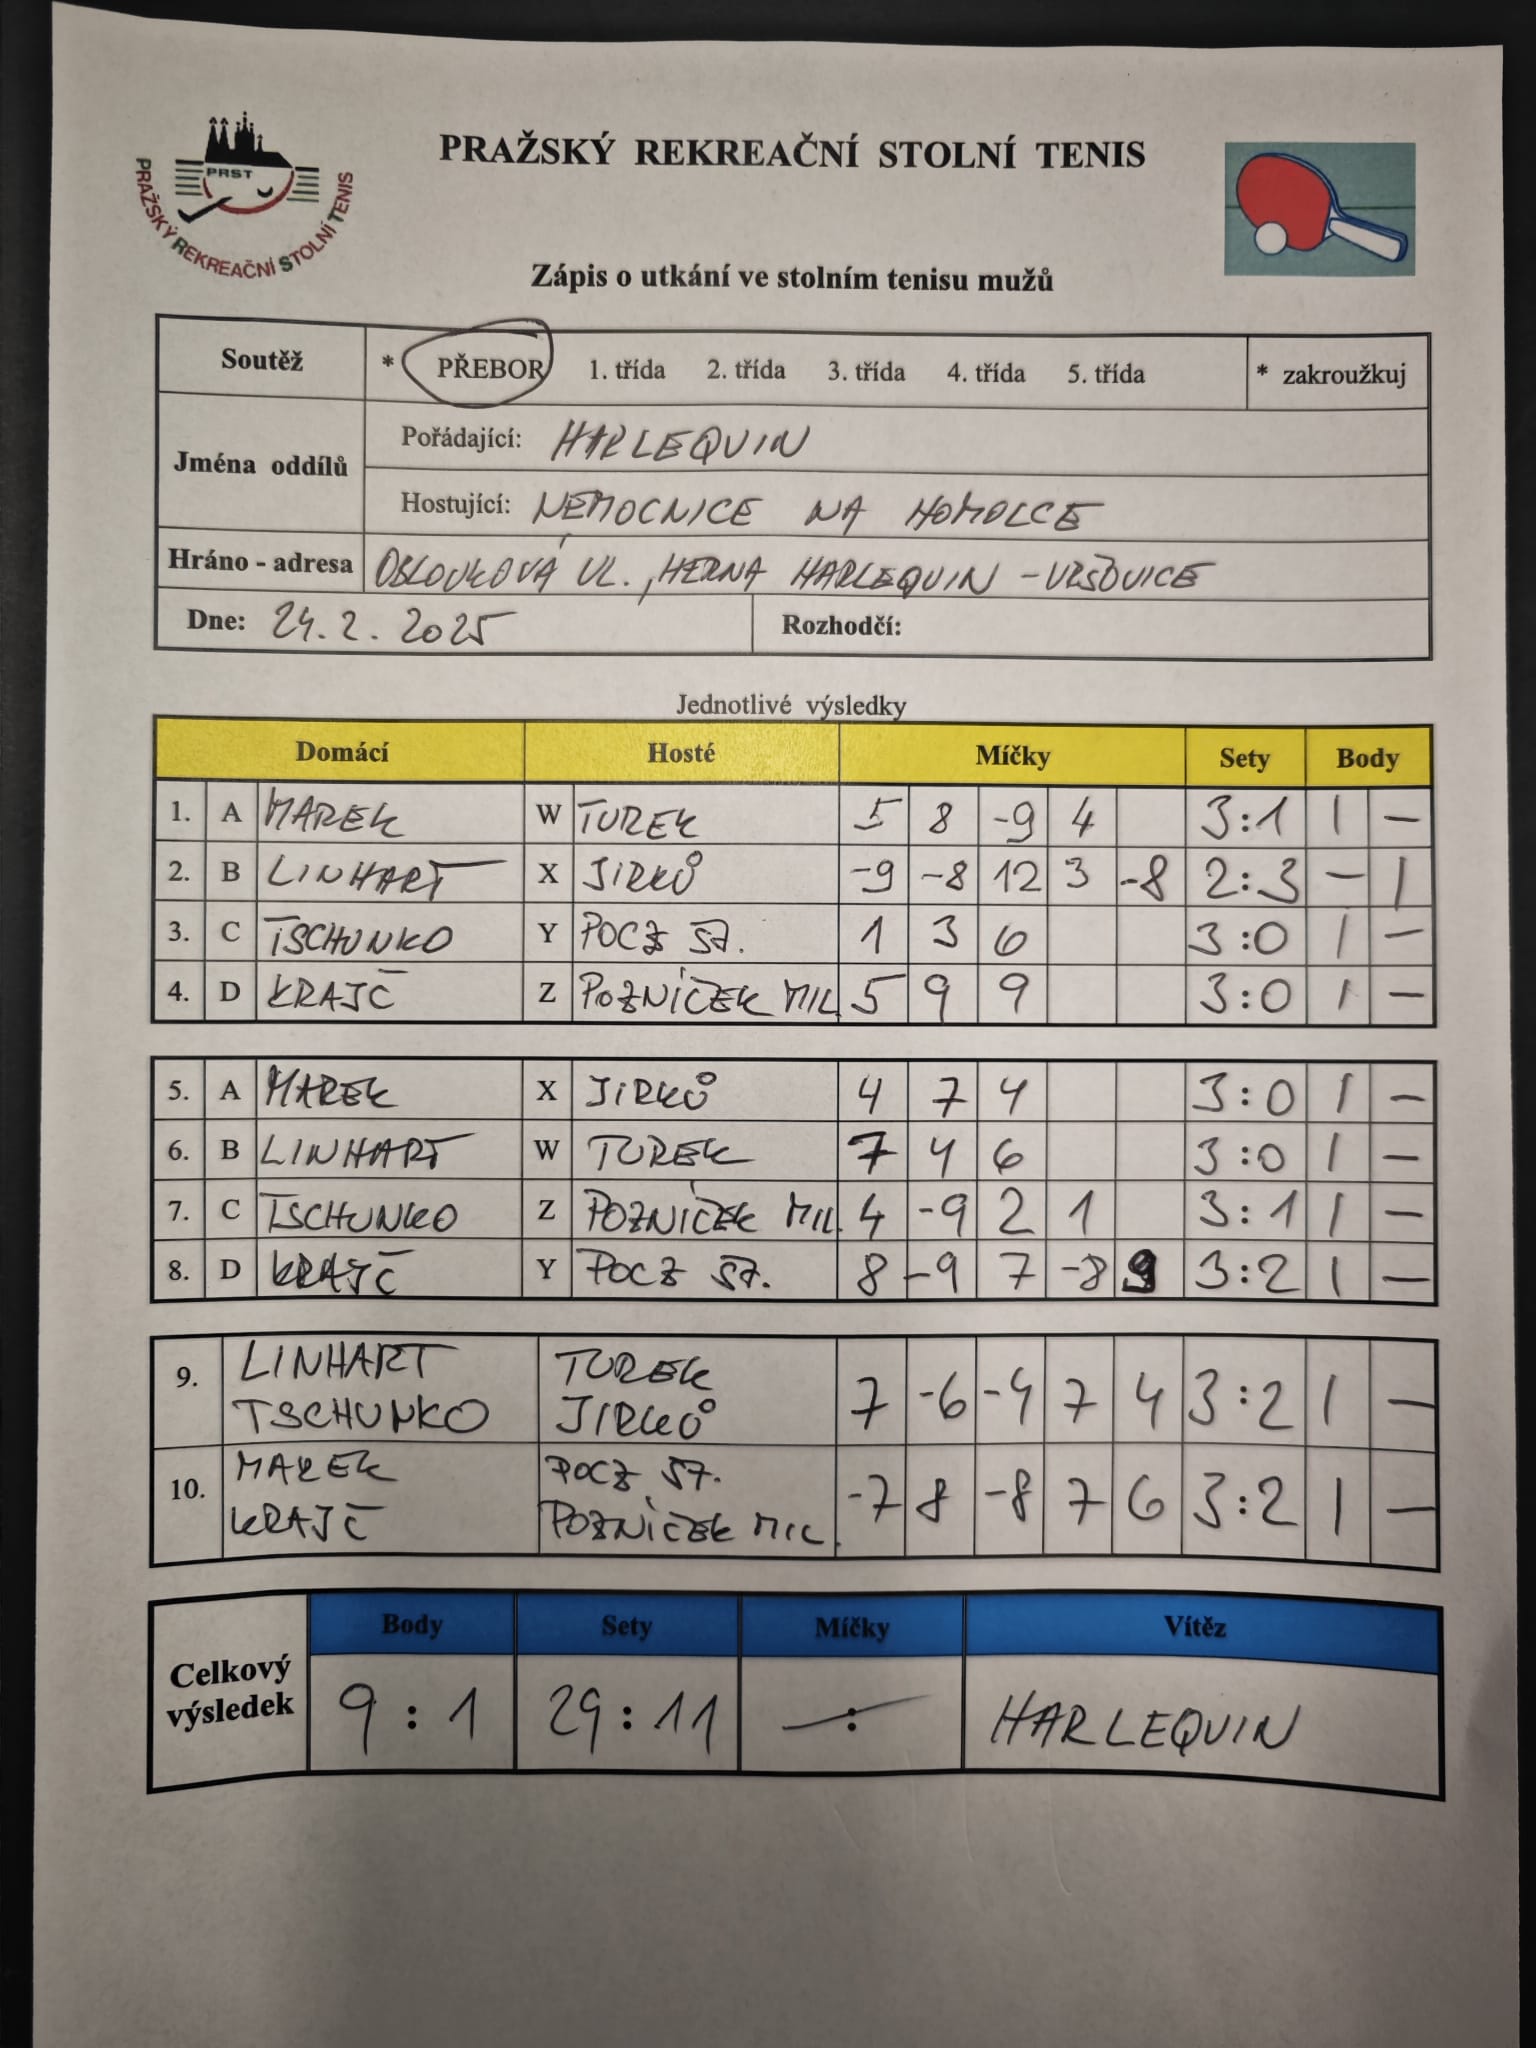 PRAŽSKÝ REKREAČNÍ STOLNÍ TENIS
PRST
PRAŽSKÝ REKREAČNÍ STOLNÍ TENIS
Zápis o utkání ve stolním tenisu mužů
Soutěž * PŘEBOR 1. třída 2. třída 3. třída 4. třída 5. třída * zakroužkuj
Jména oddílů
Pořádající: HARLEQUIN
Hostující: NEMOCNICE NA HOMOLCE
Hráno - adresa OBLOUKOVÁ UL., HERNA HARLEQUIN - VRŠOVICE
Dne: 24.2.2025 Rozhodčí:
Jednotlivé výsledky
Domácí Hosté Míčky Sety Body
1. A MAREK W TUREK 5 8 -9 4 3:1 1 -
2. B LINHART X JIRKŮ -9 -8 12 3 -8 2:3 - 1
3. C TSCHUNKO Y POCZ ST. 1 3 6 3:0 1 -
4. D KRAJČ Z POZNÍČEK MIL 5 9 9 3:0 1 -
5. A MAREK X JIRKŮ 4 7 4 3:0 1 -
6. B LINHART W TUREK 7 4 6 3:0 1 -
7. C TSCHUNKO Z POZNÍČEK MIL. 4 -9 2 1 3:1 1 -
8. D KRAJČ Y POCZ ST. 8 -9 7 -8 9 3:2 1 -
9. LINHART TUREK
TSCHUNKO JIRKŮ 7 -6 -4 7 4 3:2 1 -
10. MAREK POCZ ST.
KRAJČ POZNÍČEK MIL. -7 8 -8 7 6 3:2 1 -
Celkový výsledek
Body Sety Míčky Vítěz
9 : 1 29 : 11 - : HARLEQUIN